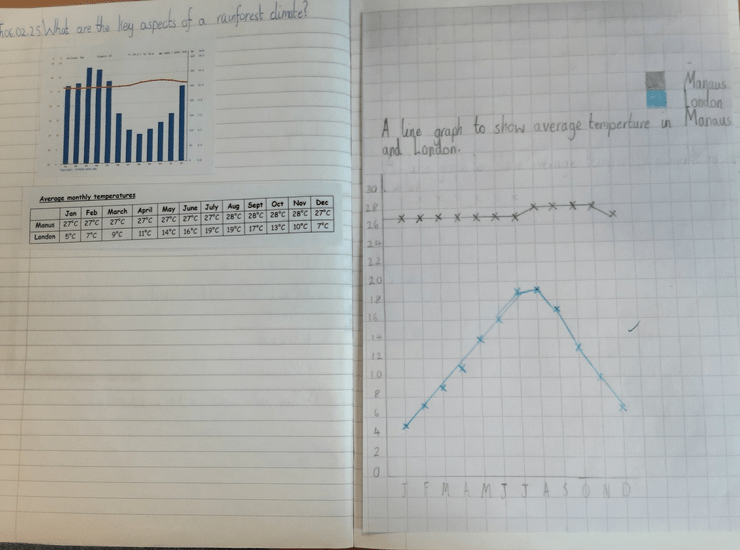 06.02.25 What are the key aspects of a rainforest climate?
Average monthly temperatures
Jan Feb March April May June July Aug Sept Oct Nov Dec
Manus 27°C 27°C 27°C 27°C 27°C 27°C 27°C 28°C 28°C 28°C 28°C 27°C
London 5°C 7°C 9°C 11°C 14°C 16°C 19°C 19°C 17°C 13°C 10°C 7°C
Manaus
London
A line graph to show average temperture in Manaus
and London.
30
28
26
24
22
20
18
16
14
12
10
8
6
4
2
0
J F M A M J J A S O N D